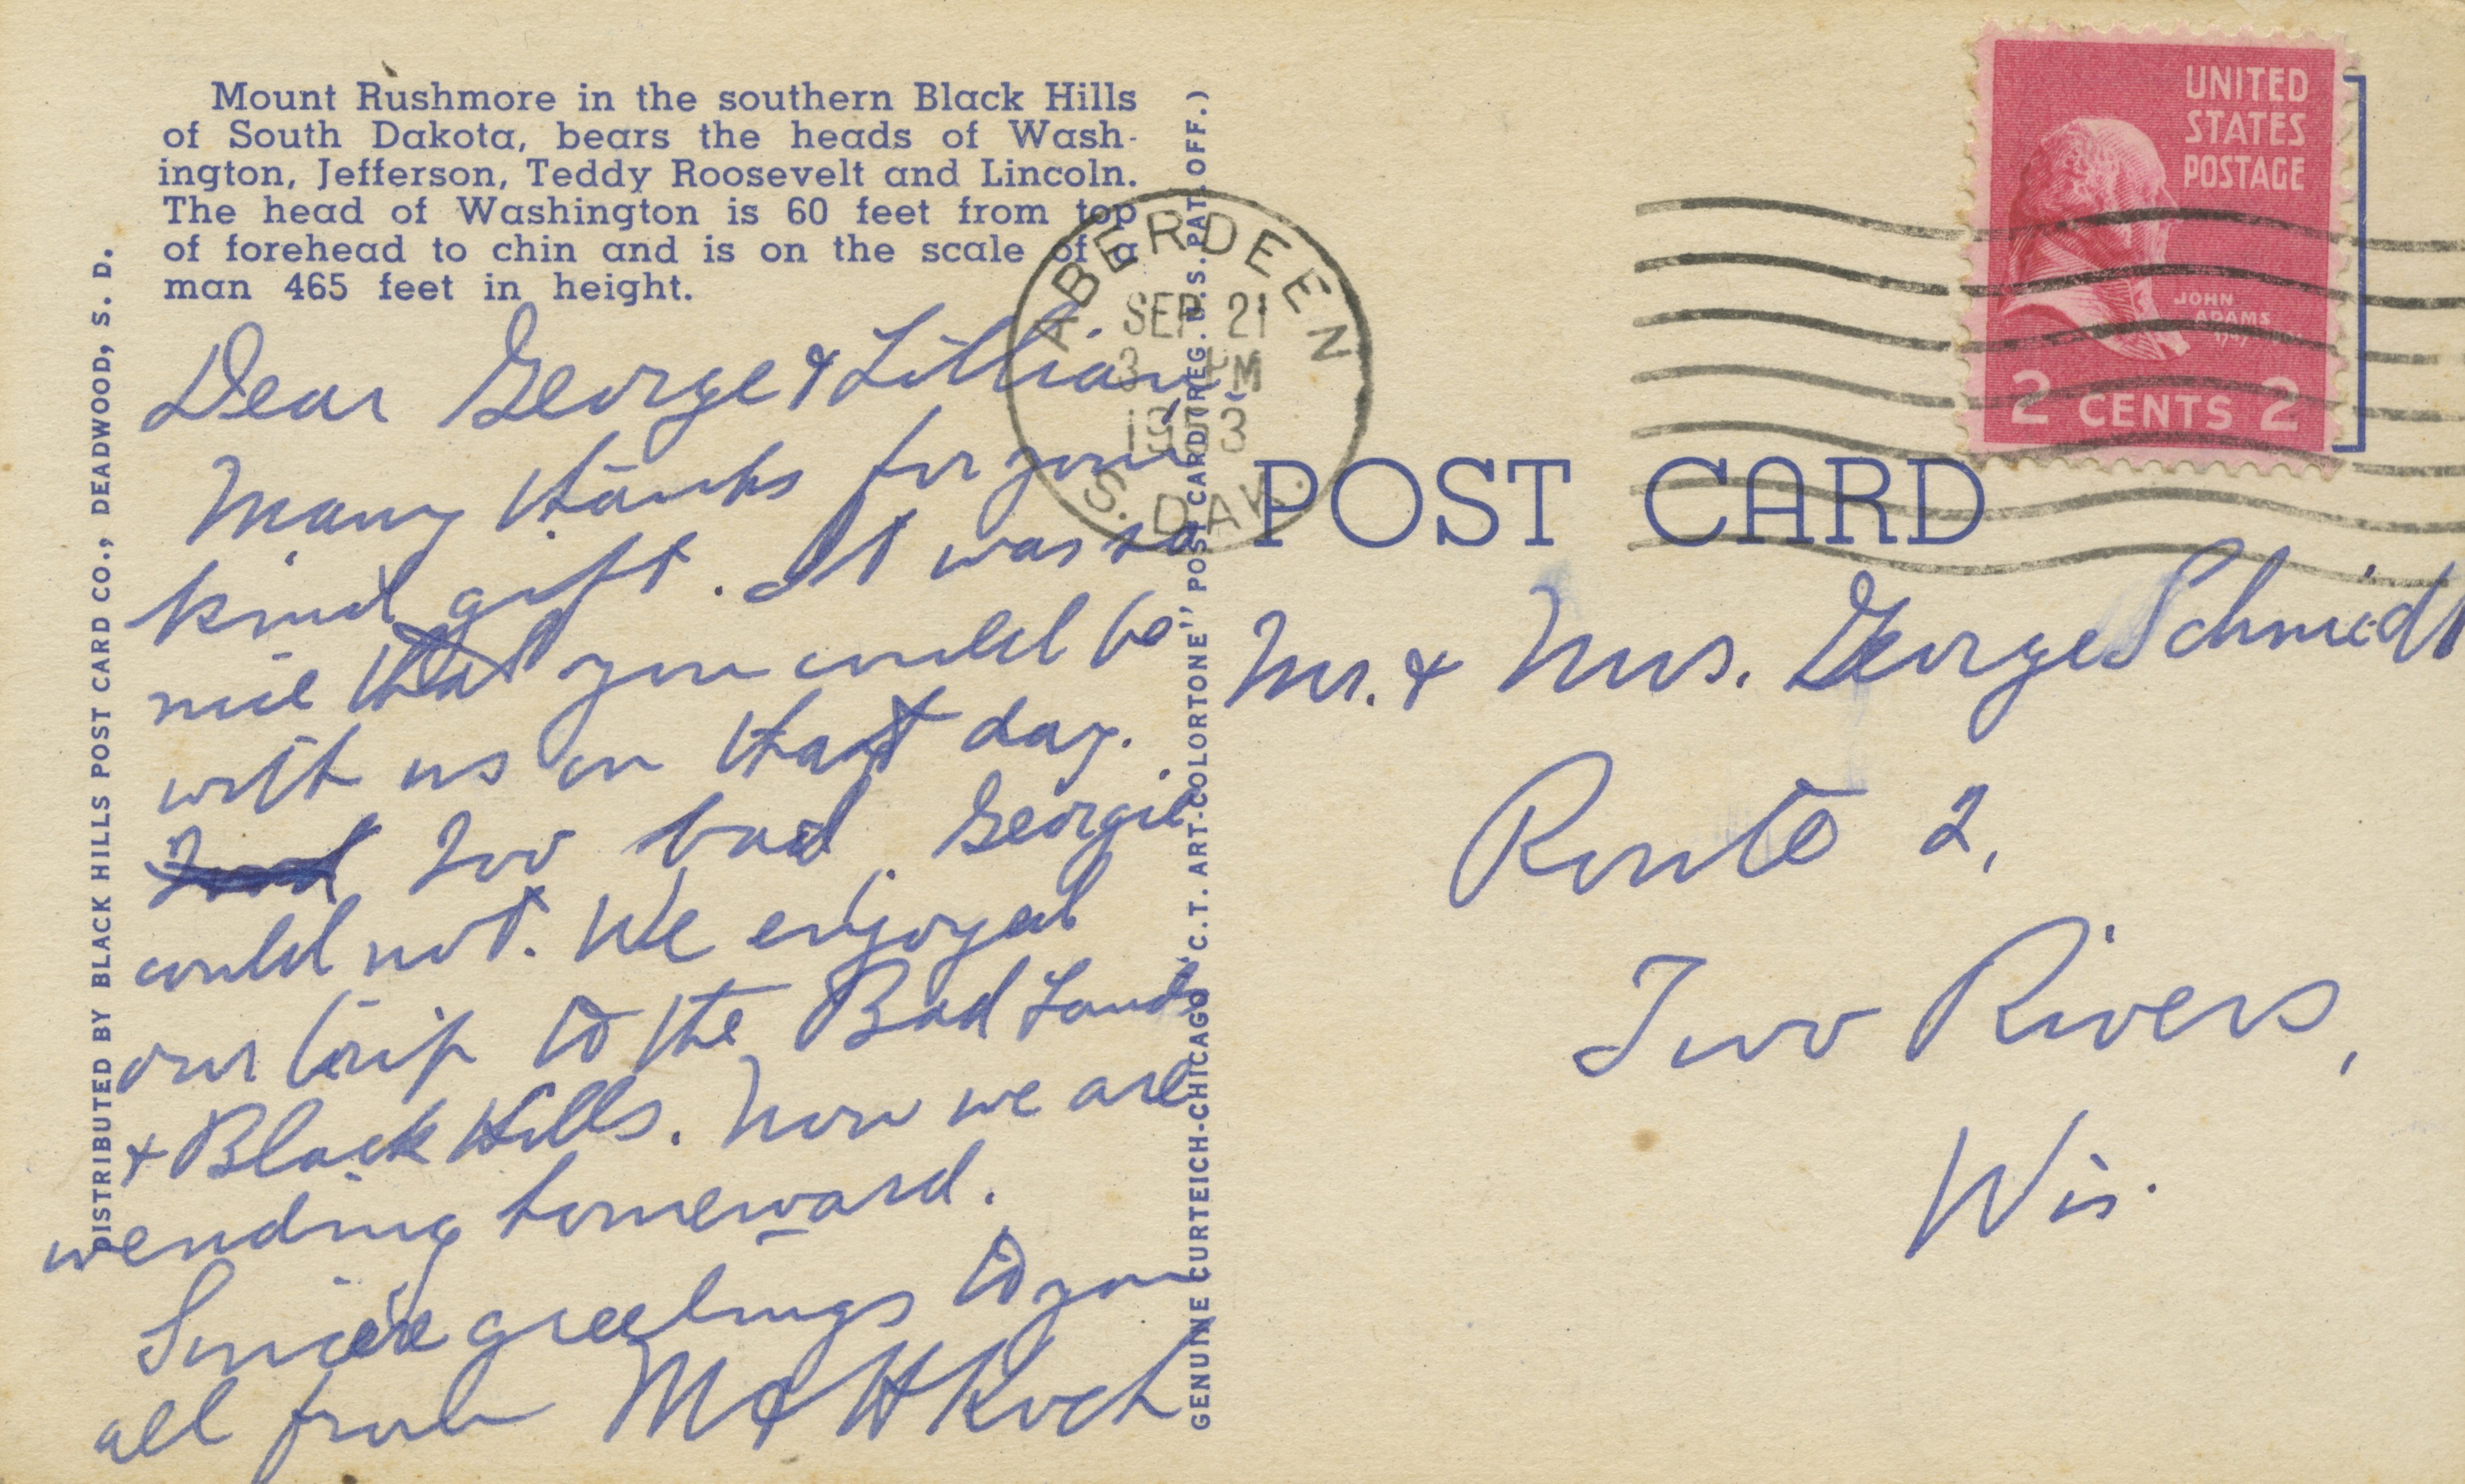 Mount Rushmore in the southern Black Hills
of South Dakota, bears the heads of Wash-
ington, Jefferson, Teddy Roosevelt and Lincoln.
The head of Washington is 60 feet from top
of forehead to chin and is on the scale of a
man 465 feet in height.
DISTRIBUTED BY BLACK HILLS POST CARD CO., DEADWOOD, S. D.
Dear George & Lillian,
Many thanks for your
kind gift. It was so
nice that you could be
with us on that day.
Too bad Georgie
could not. We enjoyed
our trip to the Bad Lands
& Black Hills. Now we are
wending homeward.
Sincere greetings to you
all from M & H Koch
GENUINE CURTEICH-CHICAGO "C.T. ART-COLORTONE" POST CARD (REG. U.S. PAT. OFF.)
ABERDEEN
SEP 21
3 PM
S. DAK.
UNITED
STATES
POSTAGE
JOHN
ADAMS
2 CENTS 2
POST CARD
Mr. & Mrs. George Schmidt
Route 2,
Two Rivers,
Wis.